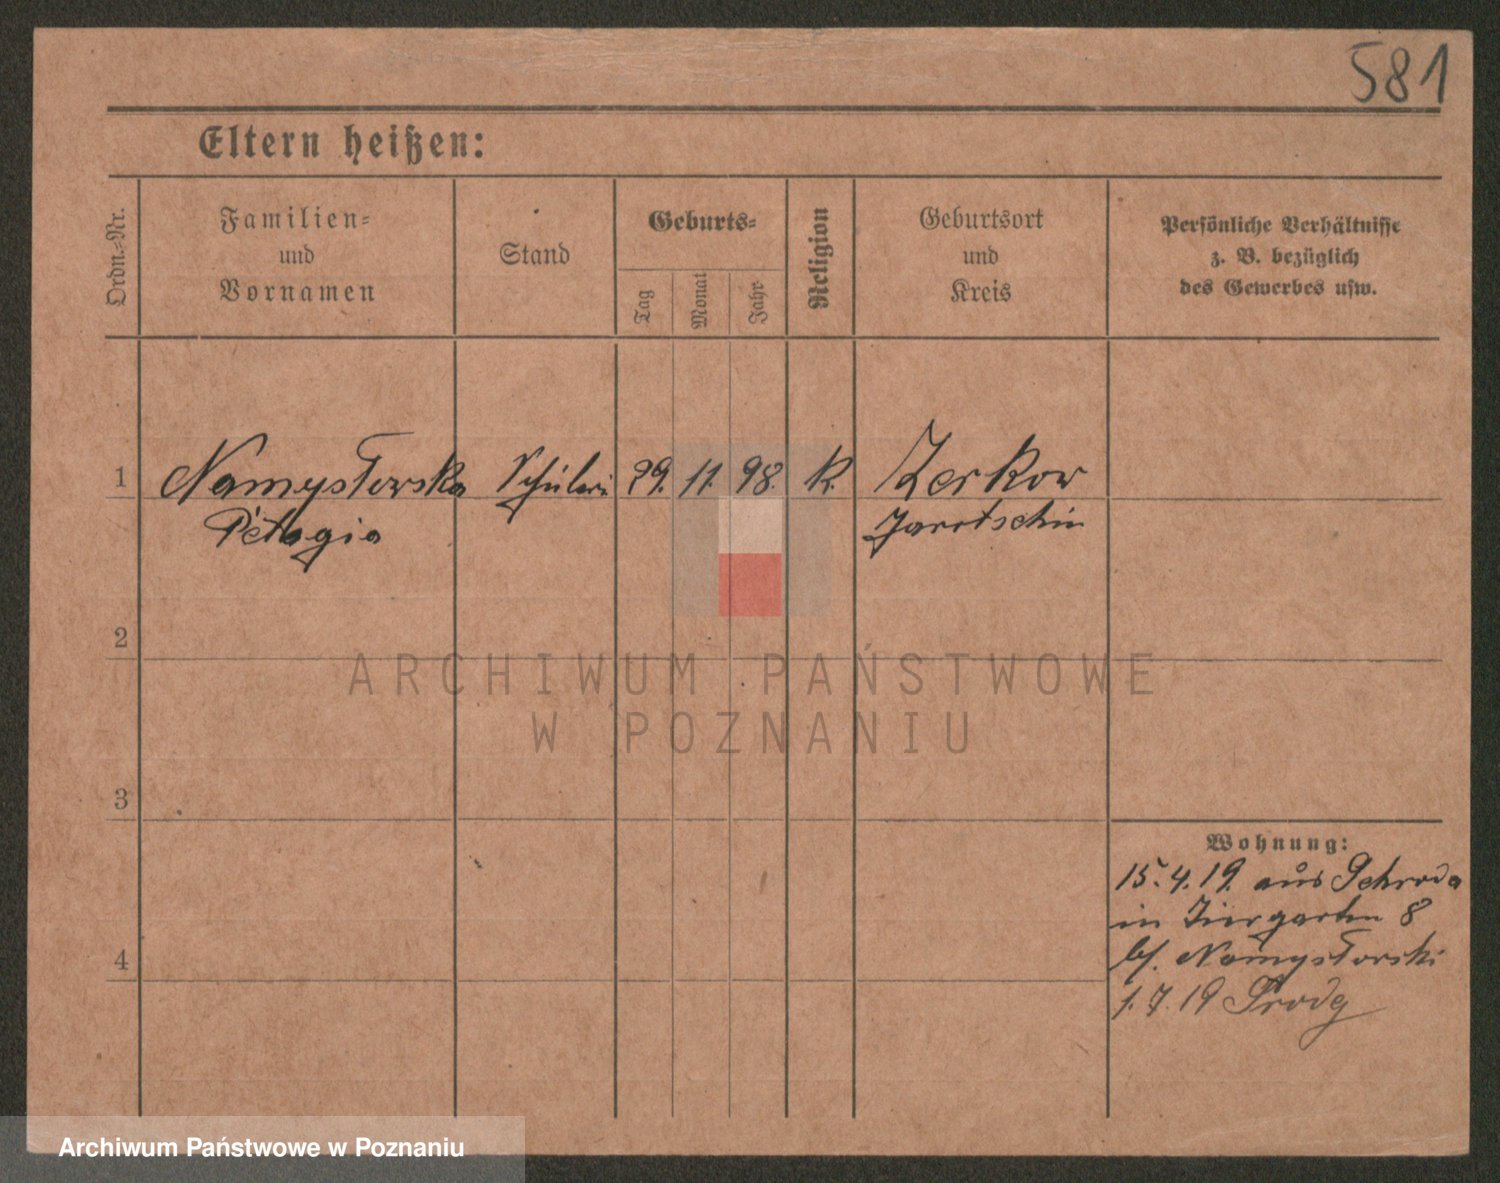 581
Eltern heißen:
Ordn.-Nr.
Familien-
und
Vornamen
Stand
Geburts-
Tag
Monat
Jahr
Religion
Geburtsort
und
Kreis
Persönliche Verhältnisse
z. B. bezüglich
des Gewerbes usw.
1
Namysłowska
Pelagia
Schülerin
29.
11.
98.
K.
Zerkow
Jarotschin
2
ARCHIWUM PAŃSTWOWE
W POZNANIU
3
Wohnung:
15.4.19. aus Schroda
in Tiergarten 8
bf. Namysłowski
1.7.19 Środy
4
Archiwum Państwowe w Poznaniu